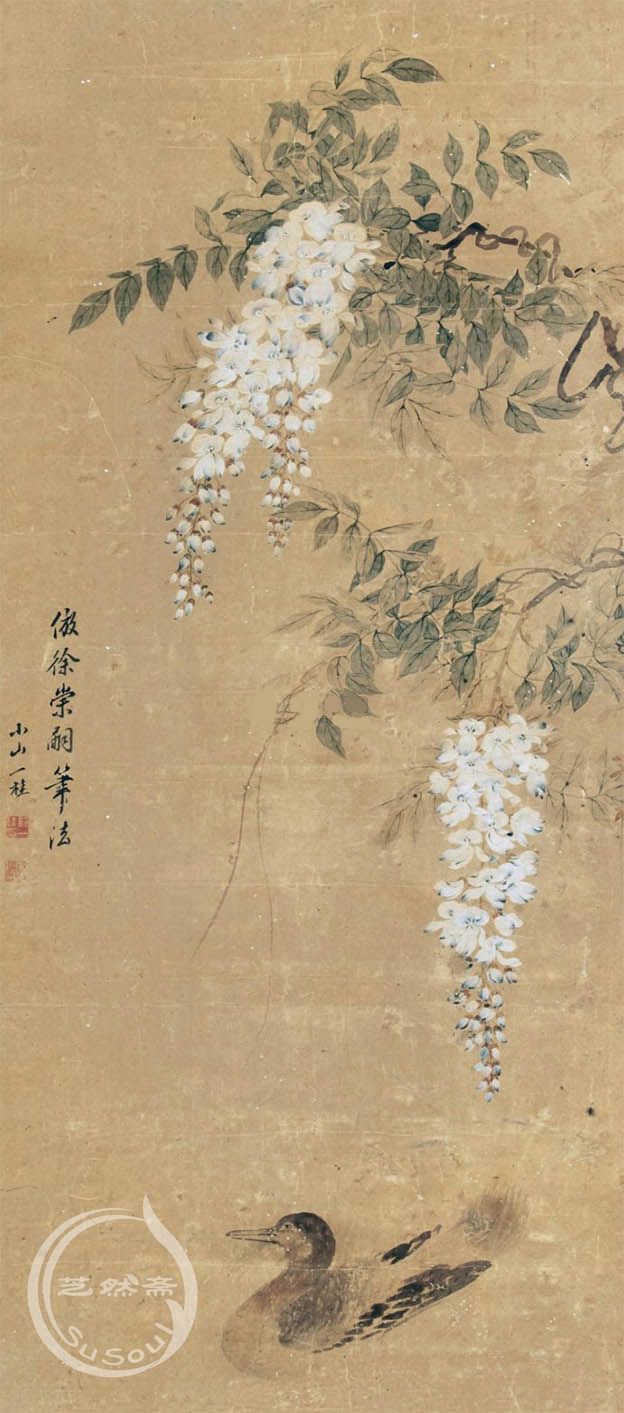 倣徐崇嗣筆法
小山一桂
芝然斋
SuSoul